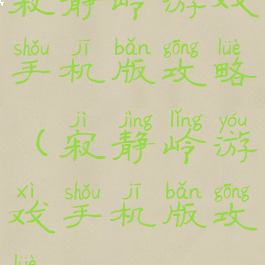 寂静岭游戏
shǒu jī bǎn gōng lüè
手机版攻略
jì jìng lǐng yóu
（寂静岭游
xì shǒu jī bǎn gōng
戏手机版攻
lüè